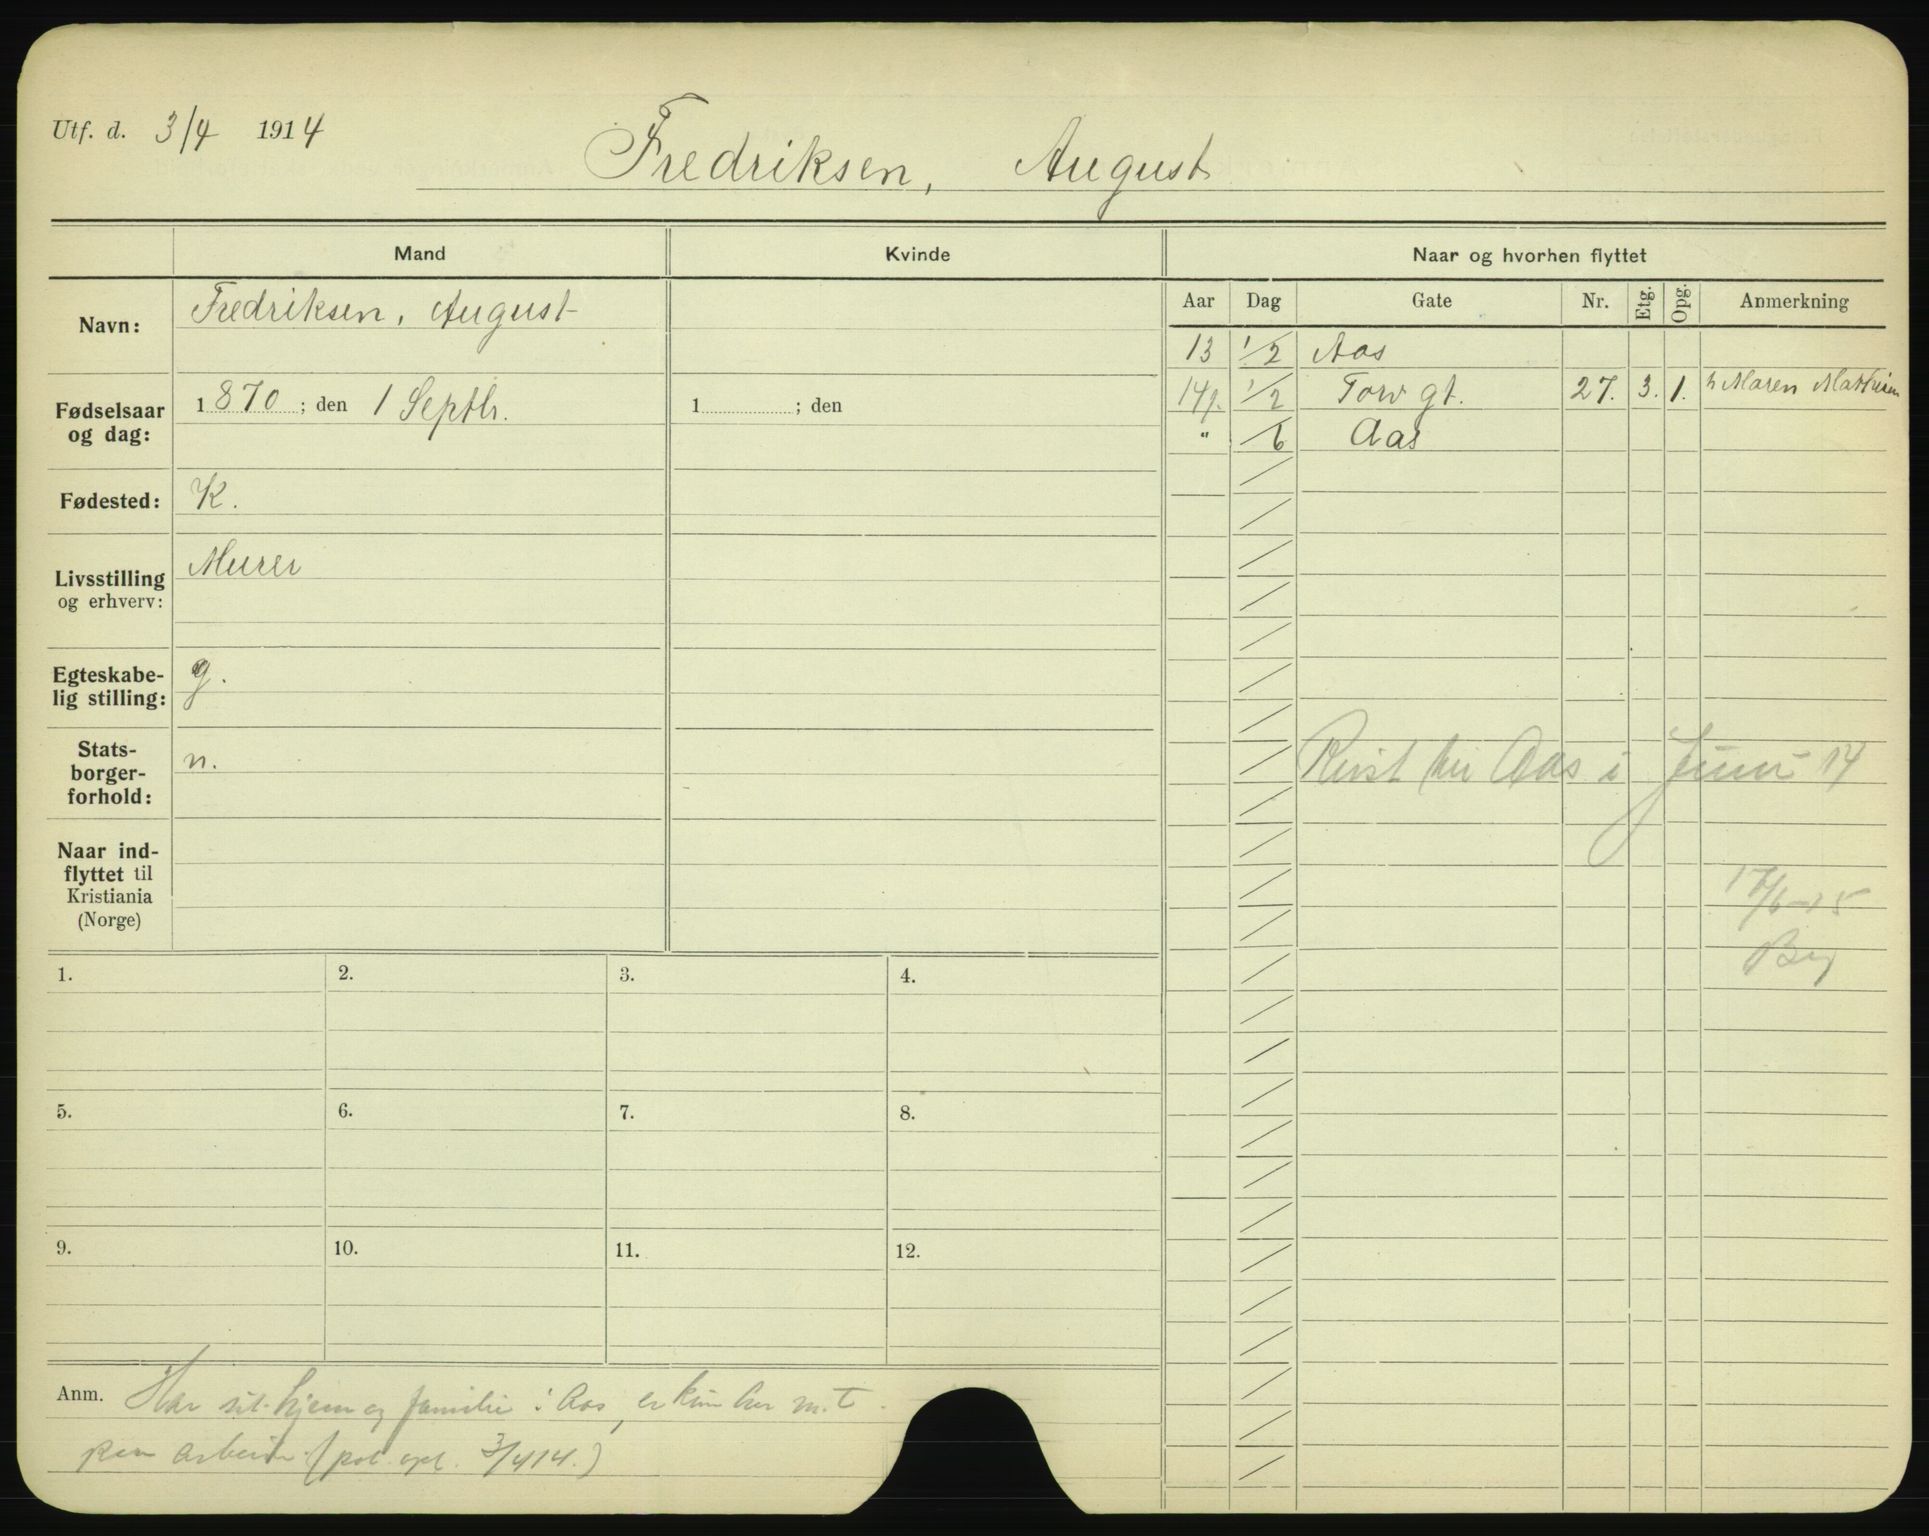 Utf. d. 3/4 1914
Fredriksen, August
Mand
Kvinde
Naar og hvorhen flyttet
Navn:
Fredriksen, August
Aar Dag Gate Nr. Etg. Opg. Anmerkning
13 1/2 Aas
Fødselsaar og dag:
1870; den 1 Septbr.
1 ; den
14 1/2 Torvgt. 27. 3. 1. h Maren Mathisen
" /6 Aas
Fødested:
K.
Livsstilling og erhverv:
Murer
Egteskabelig stilling:
g.
Statsborgerforhold:
n.
Reist til Aas i Juni 14
Naar indflyttet til Kristiania (Norge)
17/6-15
1. 2. 3. 4.
5. 6. 7. 8.
9. 10. 11. 12.
Anm. Har sit hjem og familie i Aas, er kun her m.t.
pol. opl. 3/4 14.)